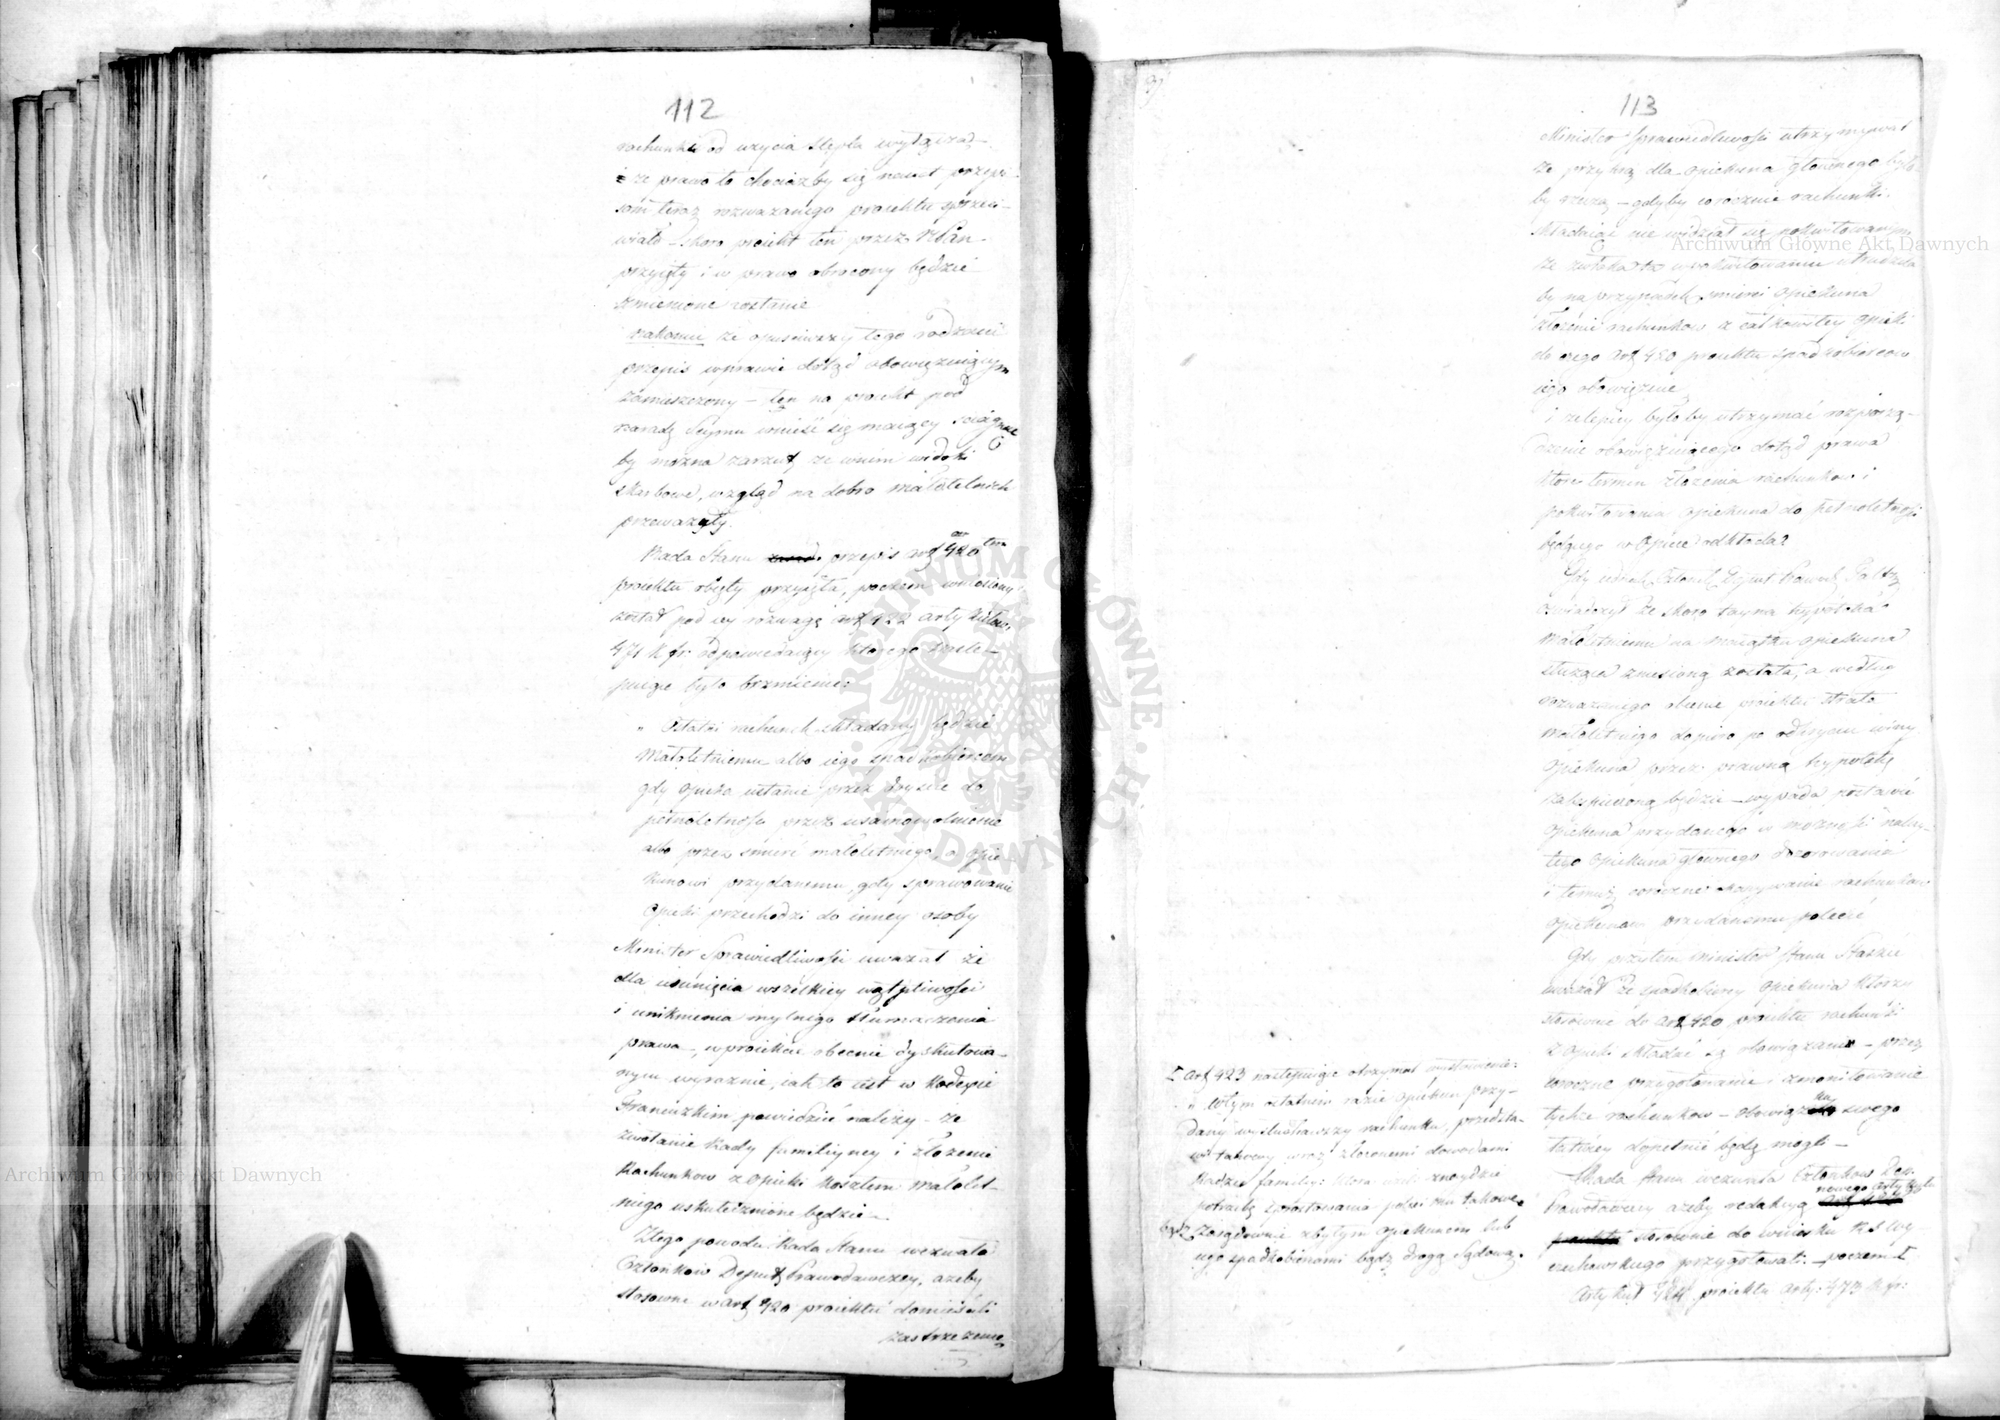 112
rachunki od użycia stępla wyłącza
że prawo to chociażby się nawet przepi-
som teraz rozważanego proiektu sprzeci-
wiało – skoro proiekt ten przez
przyięty i w prawo obrócony będzie
zmienione zostanie
nakoniec że opuściwszy tego rodzaiu
przepis w prawie dotąd obowiązuiącym
zamieszczony – ten na proiekt pod
naradę Seymu wnieść się maiący ściągnąć
by można zarzut że w nim widoki
skarbowe, wzgląd na dobro małoletnich
przeważyły.
Rada Stanu przepis art 420
proiektu przyięła, poczem wniesiony
został pod iey rozwagę art 422 artykułowi
471 K fr: odpowiadaiący którego nastę-
puiące było brzmienie:
„ Ostatni rachunek składany będzie
Małoletniemu albo iego spadkobiercom
gdy opieka ustanie przez doyście do
pełnoletności przez usamowolnienie
albo przez śmierć małoletniego, a opie-
kunowi przydanemu, gdy sprawowanie
opieki przechodzi do inney osoby
Minister Sprawiedliwości uważał że
dla usunięcia wszelkiey wątpliwości
i uniknienia mylnego tłumaczenia
prawa –, w proiekcie obecnie dyskutowa-
nym wyraźnie, iak to iest w Kodexie
Francuzkim powiedzieć należy – że
zwołanie Rady familiyney i złożenie
Rachunkow z opieki kosztem małolet-
niego uskutecznione będzie –
Z tego powodu Rada Stanu wezwała
Członków Deput Prawodawczey, ażeby
stosownie w art 420 proiektu domieścili
zastrzeżenie
113
Minister Sprawiedliwości utrzymywał
że przykrą dla opiekuna głównego była-
by rzeczą – gdyby corocznie rachunki
składaiąc nie widział się pokwitowanym
że zwłoka ta w pokwitowaniu utrudziła
by na przypadek śmierci opiekuna
złożenie rachunkow z całkowitey opieki
do czego art 420 proiektu spadkobiercow
iego obowiązuie
i że lepiey byłoby utrzymać rozporzą-
dzenie obowiązuiącego dotąd prawa
które termin złożenia rachunkow i
pokwitowania opiekuna do pełnoletności
będącego w opiece odkłada?
Gdy iednak Członek Deput Prawod.
oświadczył że skoro tayna hypoteka
małoletniemu na maiątku opiekuna
służąca zniesioną została, a według
rozważanego obecnie proiektu strata
małoletniego dopiero po odkryciu winy
opiekuna przez prawną hypotekę
zabezpieczoną będzie – wypada postawić
opiekuna przydanego w możności należy-
tego opiekuna głównego dozorowania
i temuż coroczne okazywanie rachunkow
opiekunowi przydanemu polecić
Gdy przytem Minister Stanu Staszic
uważał że spadkobiercy opiekuna którzy
stosownie do art 420 proiektu rachunki
z opieki składać są obowiązani – przez
coroczne przygotowanie i zmonitowanie
tychże rachunkow – obowiązku swego
łatwiey dopełnić będą mogli –
Rada Stanu wezwała Członkow Dep:
Prawodawczey ażeby redakcyą nowego artykułu
stosownie do wniosku R S Wy-
czechowskiego przygotowali – poczem
Artykuł 424 proiektu arty: 473 K fr:
Art 423 następuiące otrzymał
„ W tym ostatnim razie opiekun przy-
dany wysłuchawszy rachunku, przedsta-
wi takowy wraz z złożonemi dowodami
Radzie familiy: która ieśli znaydzie
potrzebę sprostowania poleci mu takowe
bądź zasądownie z byłym opiekunem lub
iego spadkobiercami bądź drogą Sądową.
Archiwum Główne Akt Dawnych
Archiwum Główne Akt Dawnych
ARCHIWUM GŁÓWNE
AKT DAWNYCH